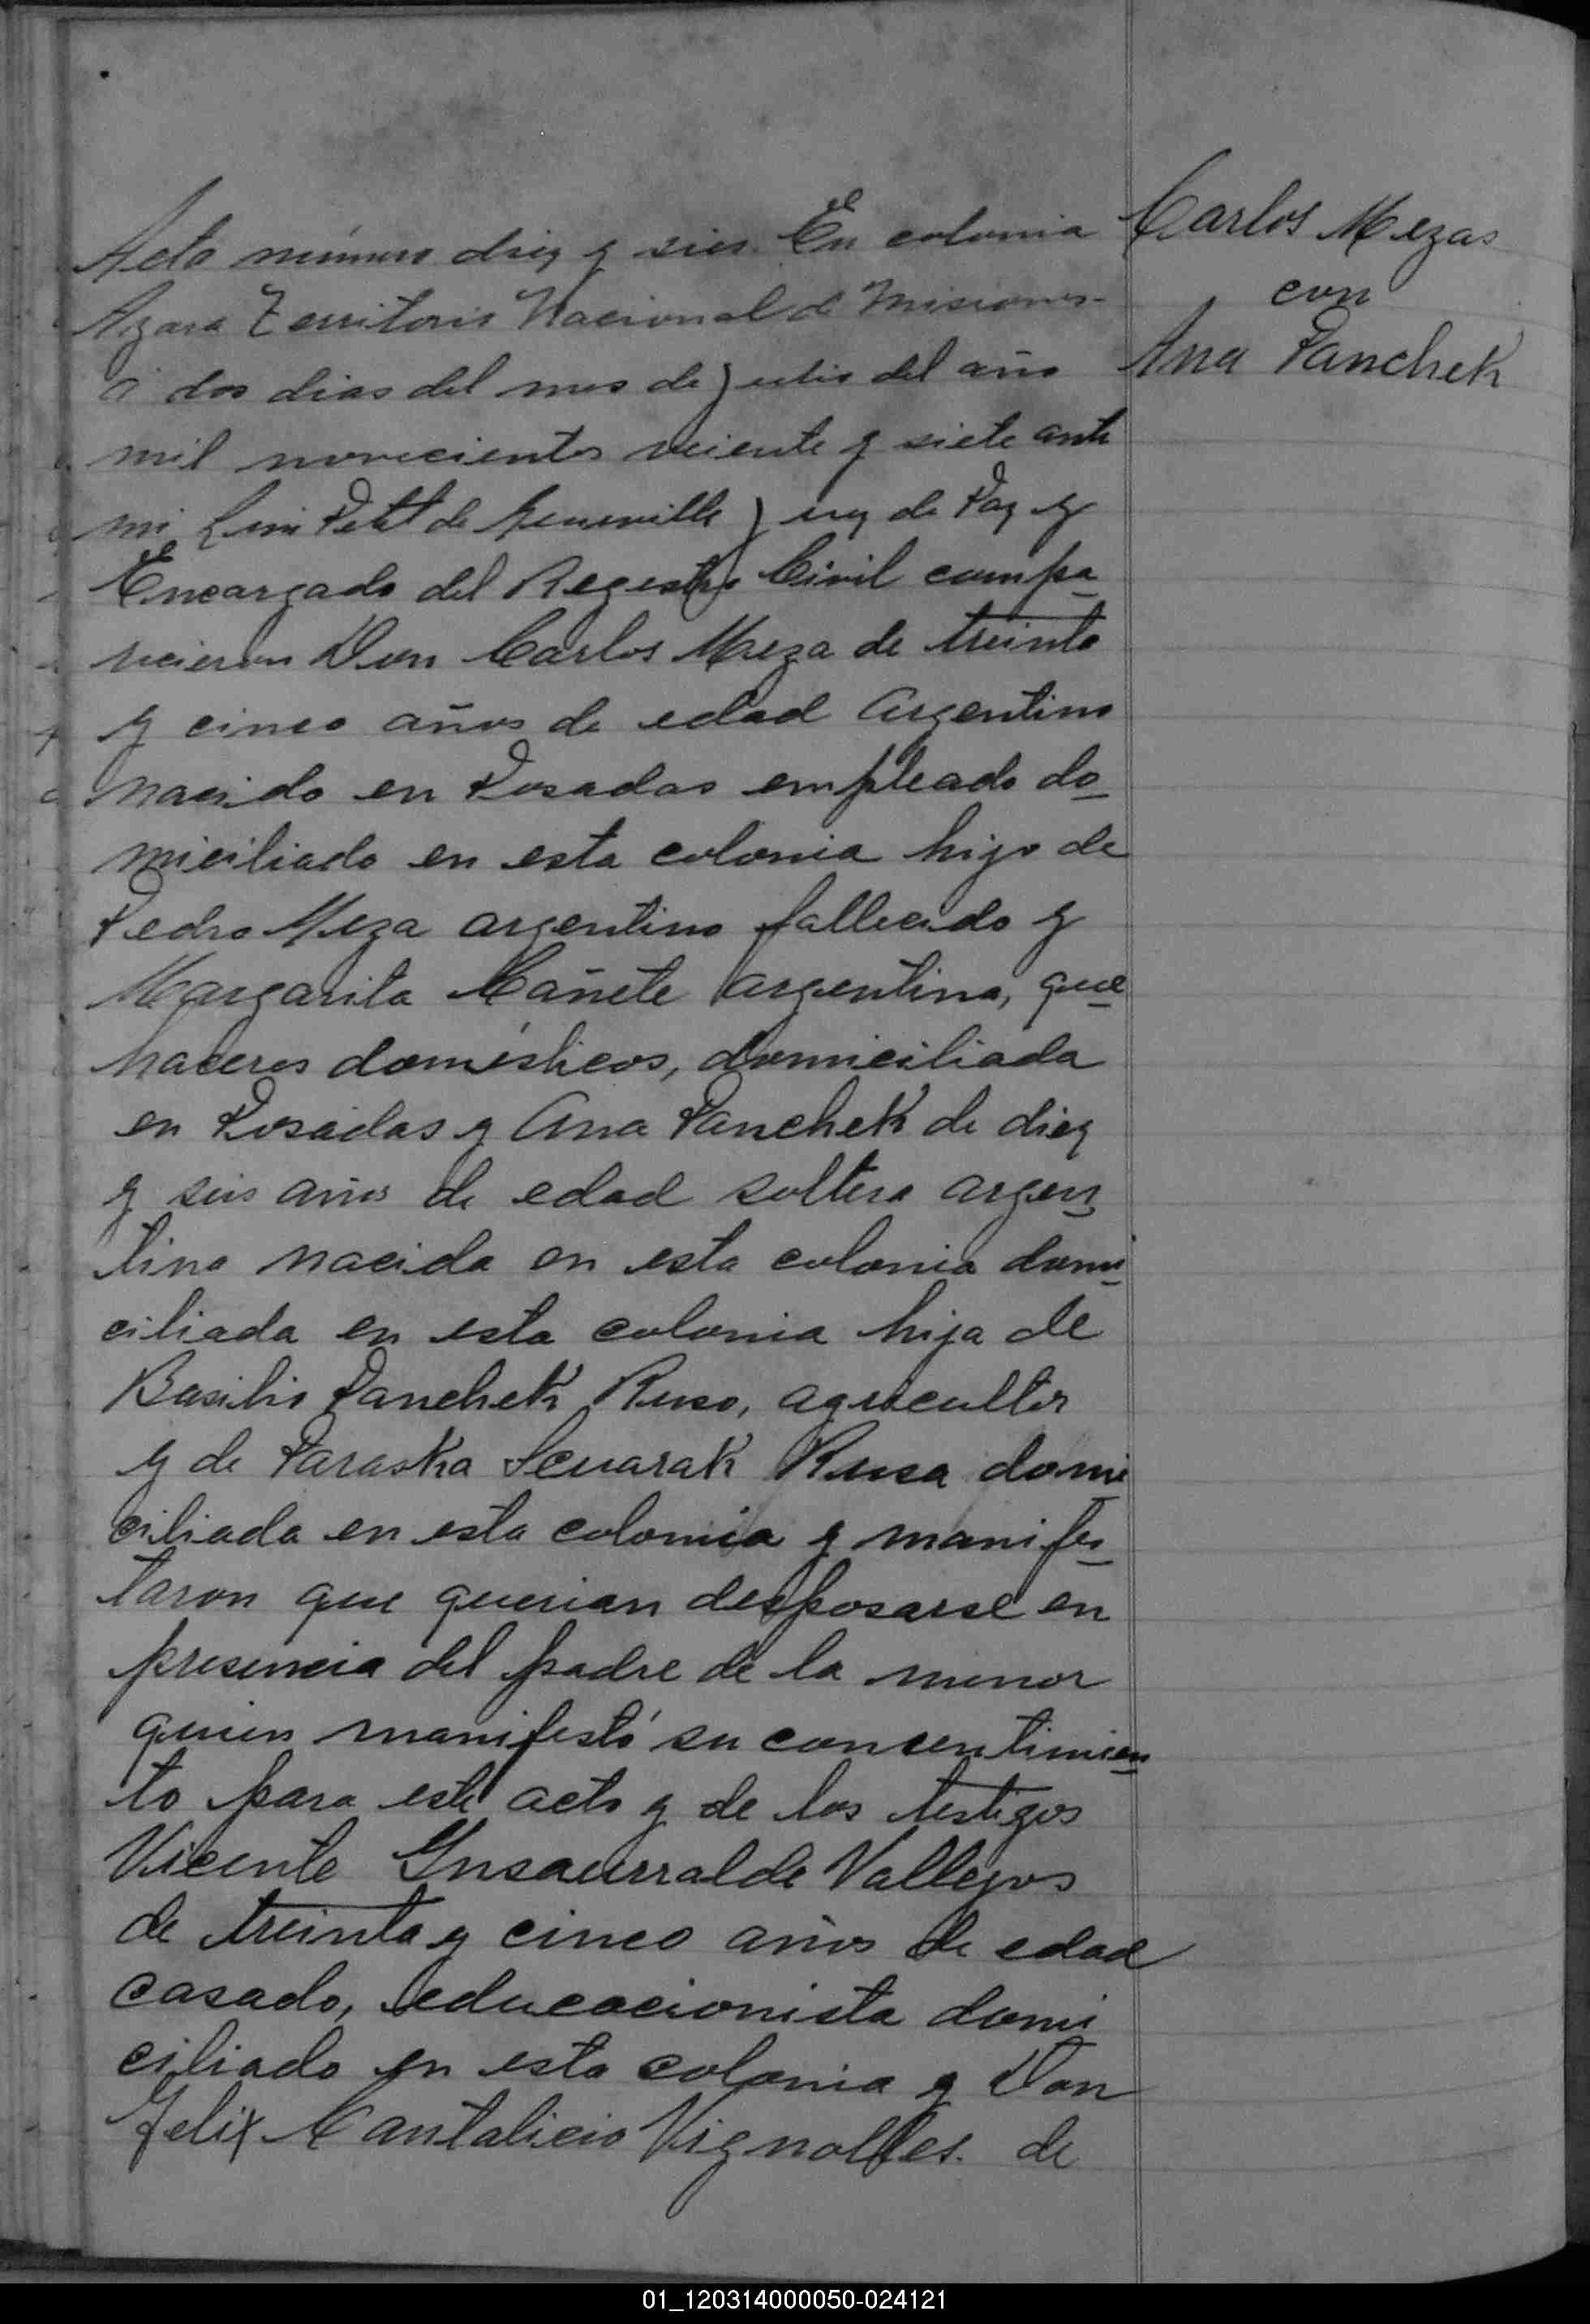 Carlos Mezas
con
Ana Panchek
Acta número diez y seis. En colonia
Azara Territorio Nacional de Misiones
á dos dias del mes de Julio del año
mil novecientos veiente y siete ante
mi Luis Petit de Juez de Paz y
Encargado del Registro Civil compa_
recieron Don Carlos Meza de treinta
y cinco años de edad Argentino
nacido en Posadas empleado do_
miciliado en esta colonia hijo de
Pedro Meza argentino fallecido y
Margarita Cañete argentina, que_
haceres domésticos, domiciliada
en Posadas y Ana Panchek de diez
y seis años de edad soltera argen_
tina nacida en esta colonia domi_
ciliada en esta colonia hija de
Basilio Panchek Ruso, agricultor
y de Paraska Rusa domi
ciliada en esta colonia y manifes_
taron que querian desposarse en
presencia del padre de la menor
quien manifestó su consentimien_
to para este acto y de los testigos
Vicente Ynsaurralde Vallejos
de treinta y cinco años de edad
casado, educacionista domi
ciliado en esta colonia y Don
Felix Cantalicio Vignolles. de
01_120314000050-024121